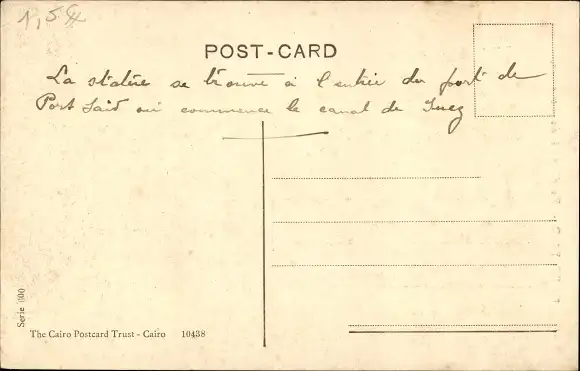 1,54
POST-CARD
La statue se trouve à l'entrée du port de
Port Saïd où commence le canal de Suez
Serie 000
The Cairo Postcard Trust - Cairo 10438